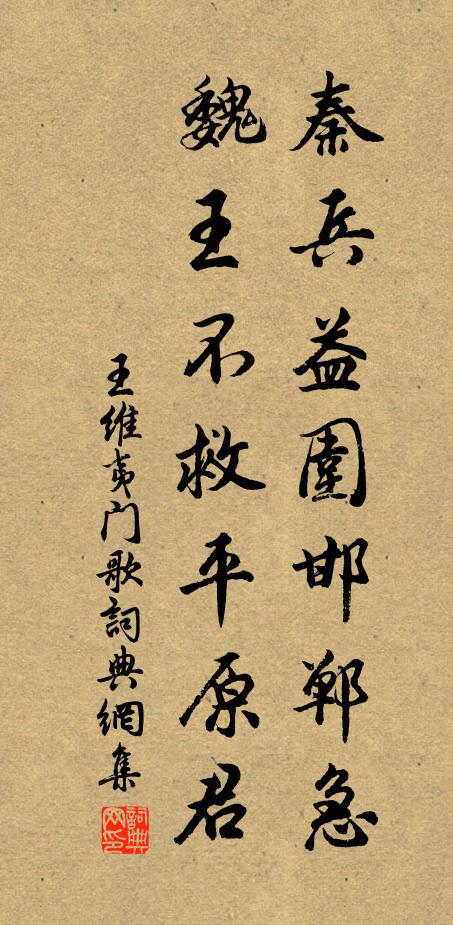 秦兵益圍邯鄲急
魏王不救平原君
王維夷门歌詞典網集
詞典網印